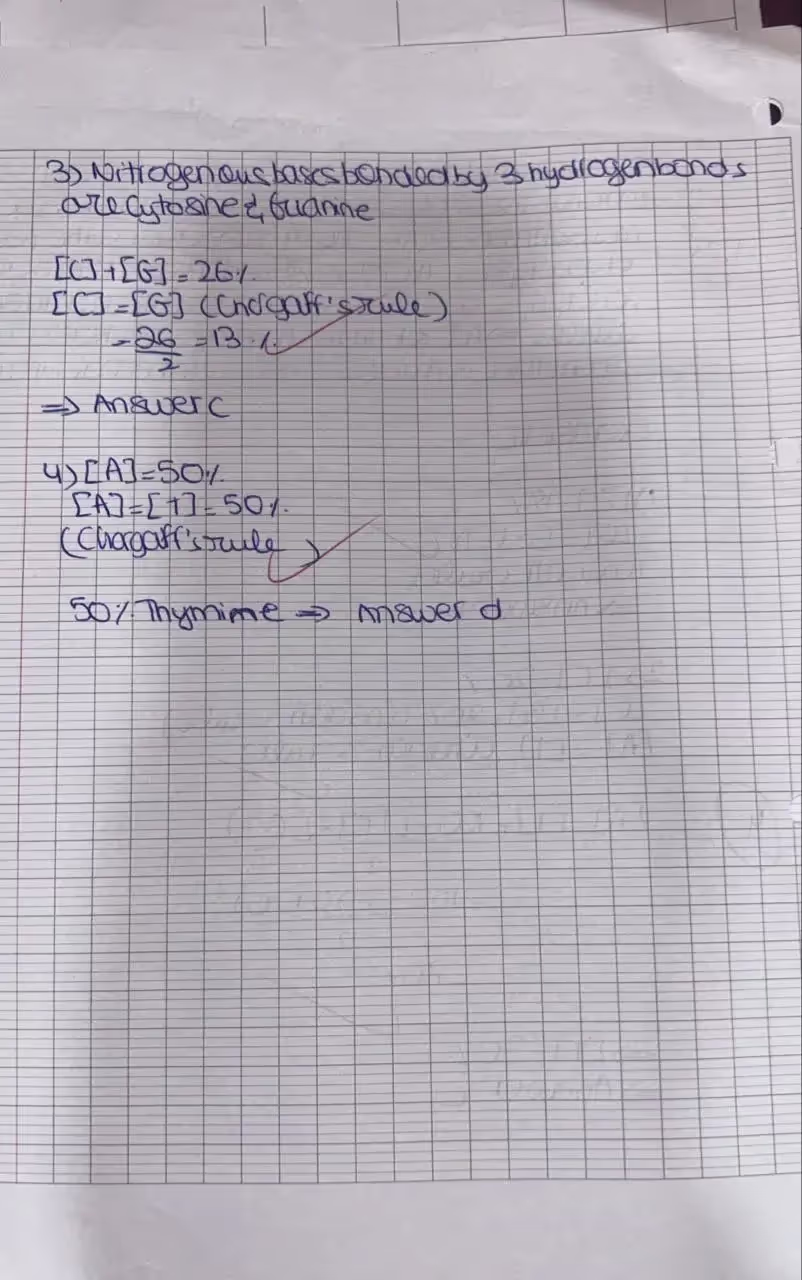 3) Nitrogenous bases bonded by 3 hydrogen bonds
are Cytosine & Guanine
[C]+[G] = 26%
[C] = [G] (Chargaff's rule)
= 26/2 = 13%
=> Answer C
4) [A] = 50%
[A] = [T] = 50%
(Chargaff's rule)
50% Thymime => Answer d